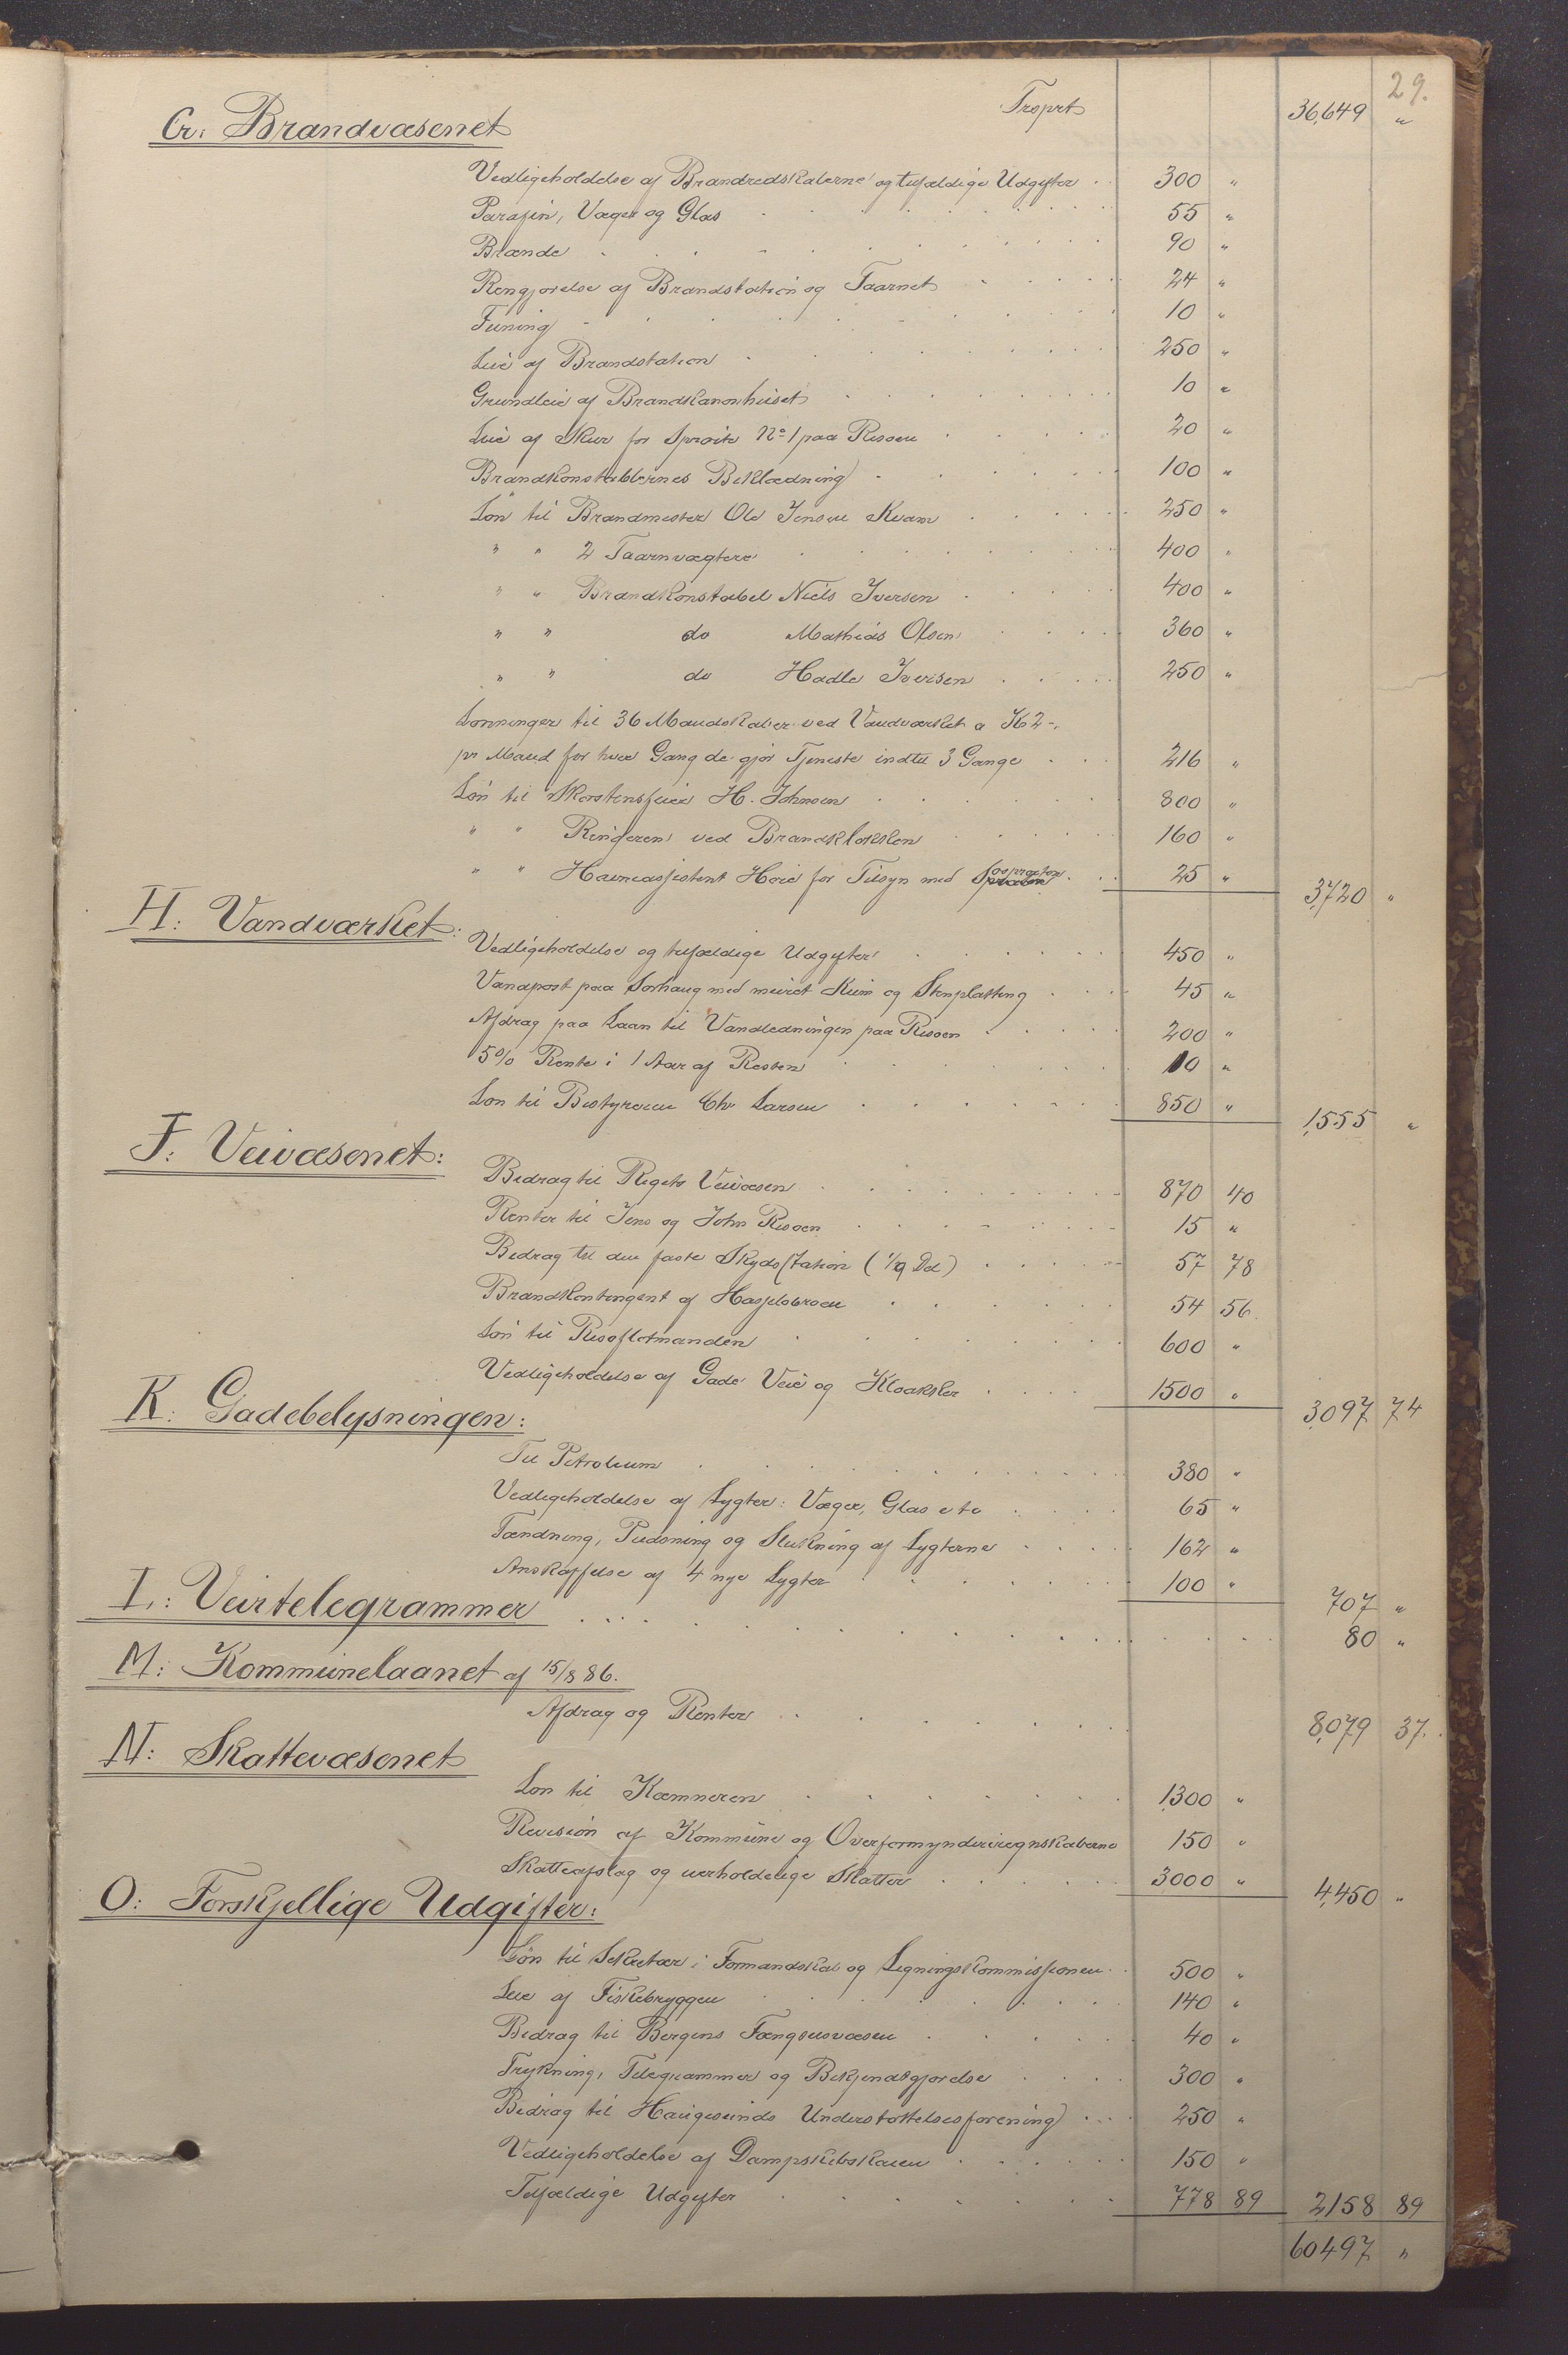 29.
Trsprt 36,649 "
G: Brandvæsenet
Vedligeholdelse af Brandredskaberne og tilfældige Udgifter . 300 "
Parafin, Væger og Glas 55 "
Brænde 90 "
Rengjørelse af Brandstation og Taarnet 24 "
Feining 10 "
Leie af Brandstation 250 "
Grundleie af Brandkanonhuset 10 "
Leie af Skur for Sprøite No 1 paa Risøen 20 "
Brandkonstablernes Beklædning 100 "
Løn til Brandmester Ole Jensen Kvam 250 "
" " 2 Taarnvægtere 400 "
" " Brandkonstabel Niels Iversen 400 "
" " do Mathias Olsen 360 "
" " do Hadle Iversen 250 "
Lønninger til 36 Mandskaber ved Vandværket a K 2-.
pr Mand for hver Gang de gjør Tjeneste indtil 3 Gange 216 "
Løn til Skorstensfeier H. Johnsen 800 "
" " Ringeren ved Brandklokken 160 "
" " Havneassistent Høie for Tilsyn med 25 " 3,720 "
H: Vandværket:
Vedligeholdelse og tilfældige Udgifter 450 "
Vandpost paa Sørhaug med muret Kum og Stenplatting 45 "
Afdrag paa Laan til Vandledningen paa Risøen 200 "
5% Rente i 1 Aar af Resten 10 "
Løn til Bestyreren Chr Larsen 850 " 1,555 "
J: Veivæsenet:
Bidrag til Rigets Veivæsen 870 40
Renter til Jens og John Risøen 15 "
Bidrag til den faste Skydsstation (1/9 Del) 57 78
Brandkontingent af Hasselobroen 54 56
Løn til Risøflotmanden 600 "
Vedligeholdelse af Gade Veie og Kloakker 1500 " 3,097 74
K: Gadebelysningen:
Til Petroleum 380 "
Vedligeholdelse af Lygter: Væger, Glas etc 65 "
Tændning, Pudsning og Slukning af Lygterne 162 "
Anskaffelse af 4 nye Lygter 100 " 707 "
L: Veirtelegrammer 80 "
M: Kommunelaanet af 15/8 86.
Afdrag og Renter 8,079 37.
N: Skattevæsenet
Løn til Kæmneren 1300 "
Revision af Kommune og Overformynderiregnskaberne 150 "
Skatteafslag og uerholdelige Skatter 3000 " 4,450 "
O: Forskjellige Udgifter:
Løn til Sekretær i Formandskab og Ligningskommissionen 500 "
Leie af Fiskebryggen 140 "
Bidrag til Bergens Fængselsvæsen 40 "
Trykning, Telegrammer og Bekjendtgjørelse 300 "
Bidrag til Haugesunds Understøttelsesforening 250 "
Vedligeholdelse af Dampskibskaien 150 "
Tilfældige Udgifter 778 89 2,158 89
60497 "